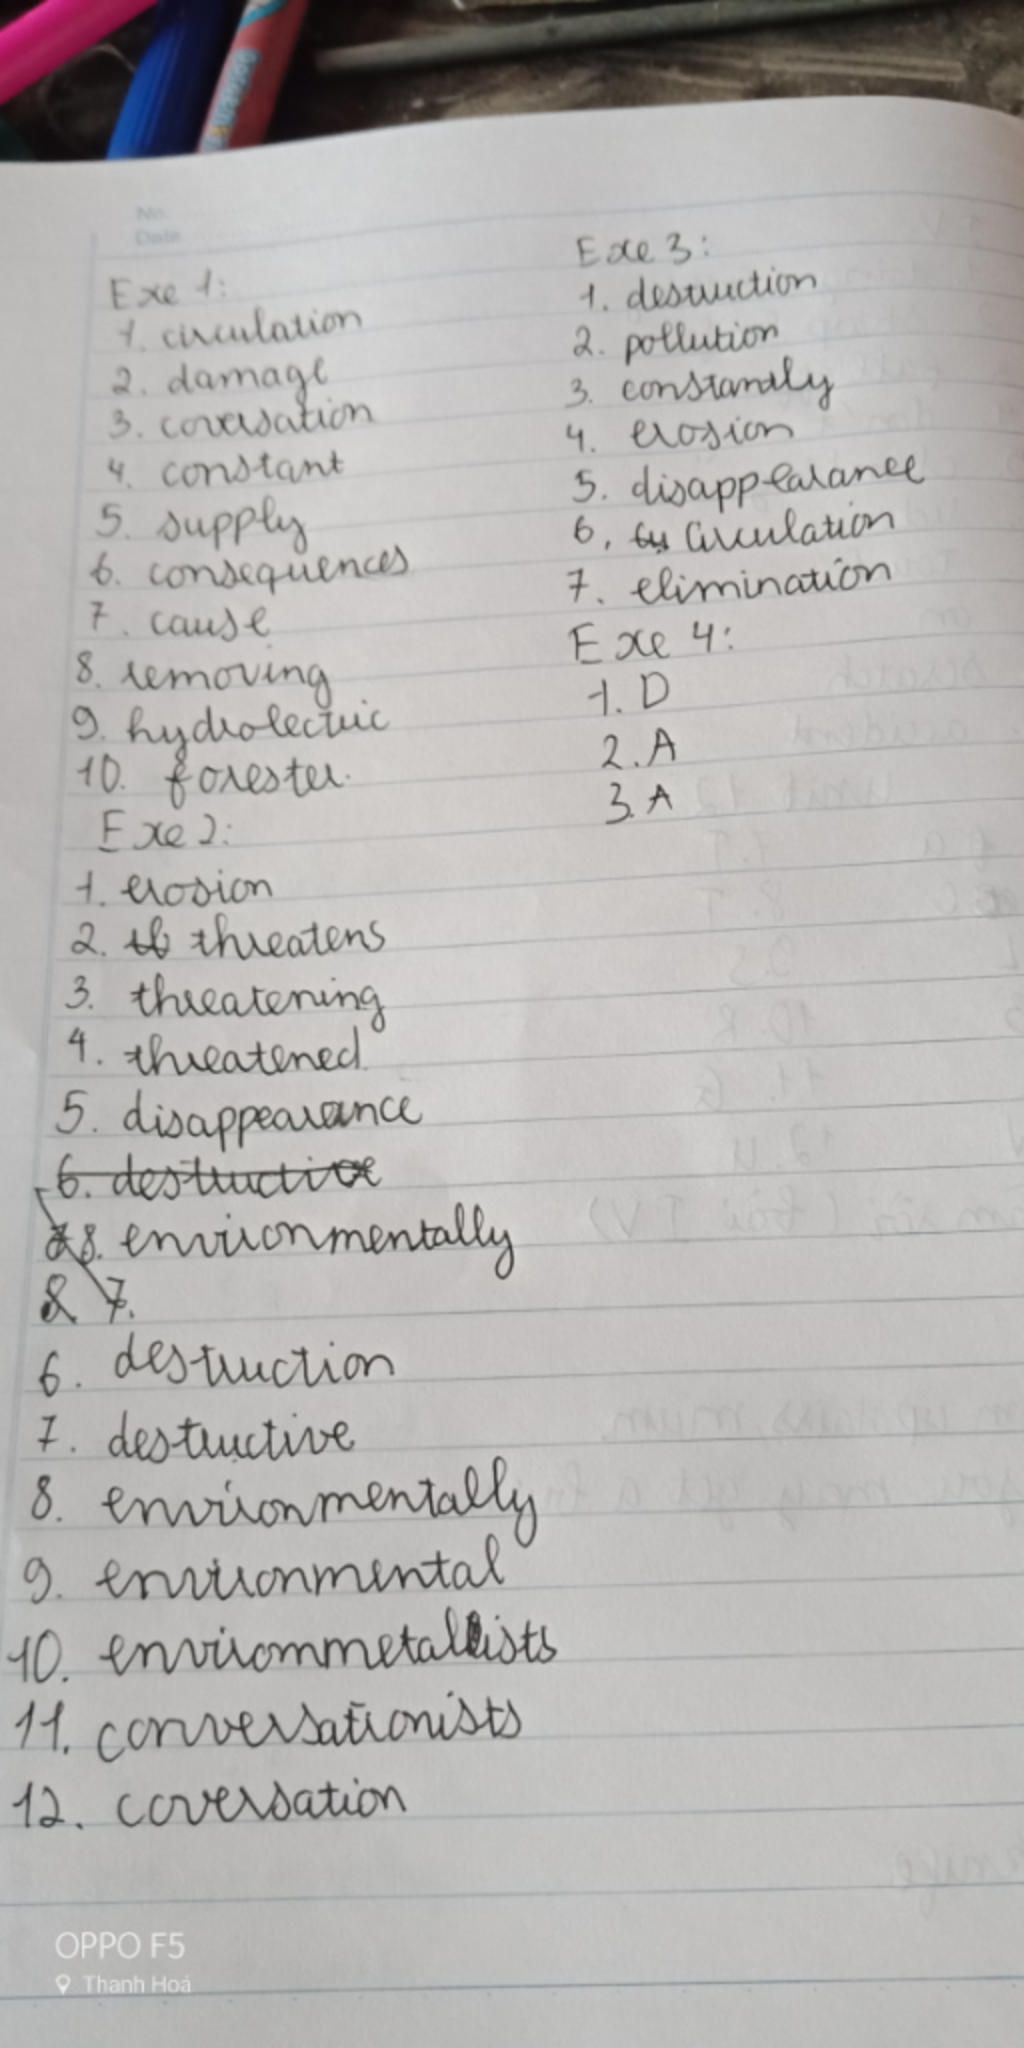 No.
Date
Exe 1:
1. circulation
2. damage
3. coversation
4. constant
5. supply
6. consequences
7. cause
8. removing
9. hydrolectric
10. forester.
Exe 2:
1. erosion
2. threatens
3. threatening
4. threatened
5. disappearance
6. destructive
8. environmentally
7.
6. destruction
7. destructive
8. environmentally
9. environmental
10. envirommetallists
11. conversationists
12. coversation
Exe 3:
1. destruction
2. pollution
3. constantly
4. erosion
5. disappearance
6. Circulation
7. elimination
Exe 4:
1. D
2. A
3. A
OPPO F5
Thanh Hoá